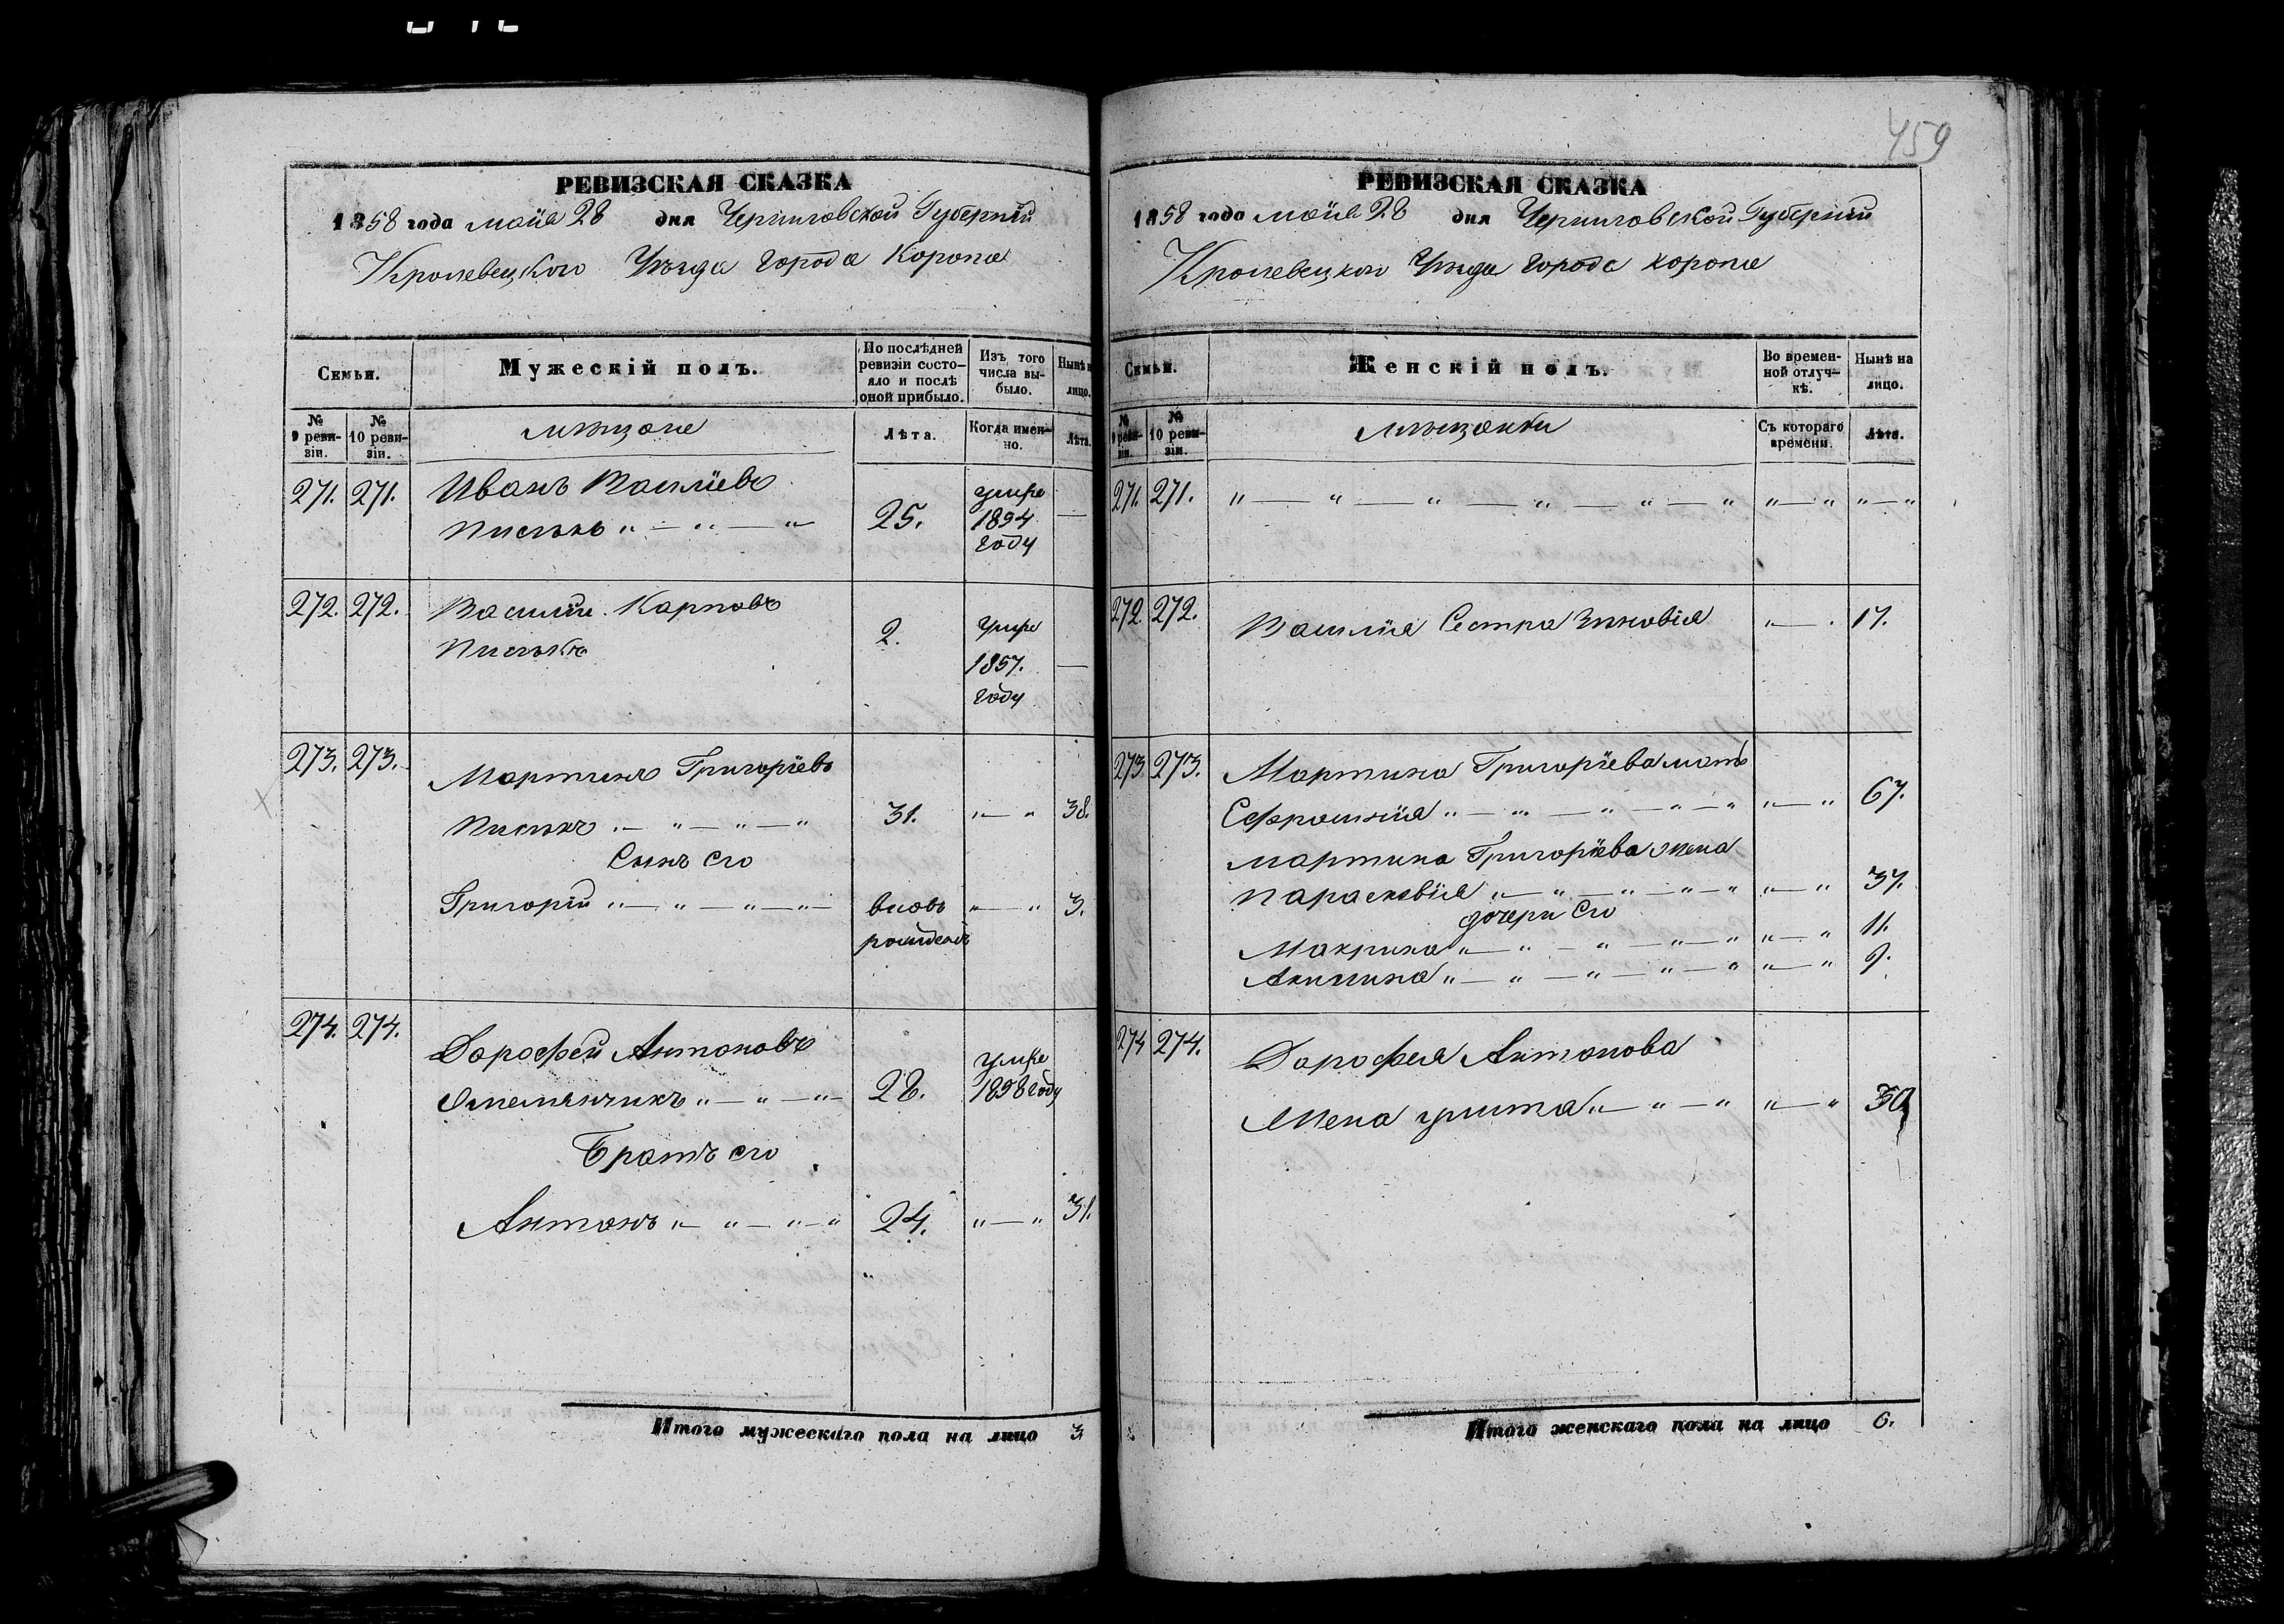 459
РЕВИЗСКАЯ СКАЗКА
1858 года маія 28 дня Черниговской Губерніи
Кролевецкого Уѣзда города Коропа
Семьи.
Мужескій полъ.
По послѣдней ревизіи состояло и послѣ оной прибыло.
Изъ того числа выбыло.
Нынѣ н лицо.
№ 9 ревизіи.
№ 10 ревизіи.
мѣщане
Лѣта.
Когда именно.
Лѣта.
271. 271. Иванъ Василіевъ
25. умре 1854 году —
272. 272. Василій Карповъ
2. умре 1857. году —
273. 273. Мартинъ Григоріевъ
31. „ — „ 38.
Сынъ его
Григорій „ — „ — „ — „ — вновь рожденъ „ — „ 3.
274. 274. Дорофей Антоновъ
28. умре 1858 году
Братъ его
Антонъ „ — „ — „ — „ 24. „ — „ 31.
Итого мужескаго пола на лицо 3
РЕВИЗСКАЯ СКАЗКА
1858 года маія 28 дня Черниговской Губерніи
Кролевецкого Уѣзда города Коропа
Семьи.
Женскій полъ.
Во временной отлучкѣ.
Нынѣ на лицо.
№ 9 ревизіи.
№ 10 ревизіи.
мѣщанки
Съ котораго времени.
Лѣта.
271. 271. „ — „ — „ — „ — „ — „ „ — „ „ — „
272. 272. Василія Сестра Зиновія „ — . 17.
273 273. Мартина Григоріева мать
Ефросинія „ — „ — „ — „ — „ „ — „ 67.
Мартина Григоріева жена
Параскевія „ — „ — „ — „ — „ „ — „ 37.
дочери его
Макрина „ — „ — „ — „ — „ „ — „ 11.
Акилина „ — „ — „ — „ — „ „ — „ 9.
274 274. Дорофея Антонова
Жена улита „ — „ — „ „ — „ 30
Итого женскаго пола на лицо 6.